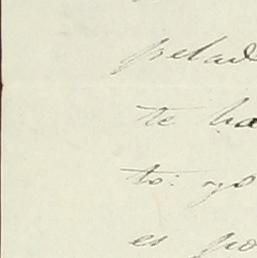 pelad
te ha
to: yo
es po